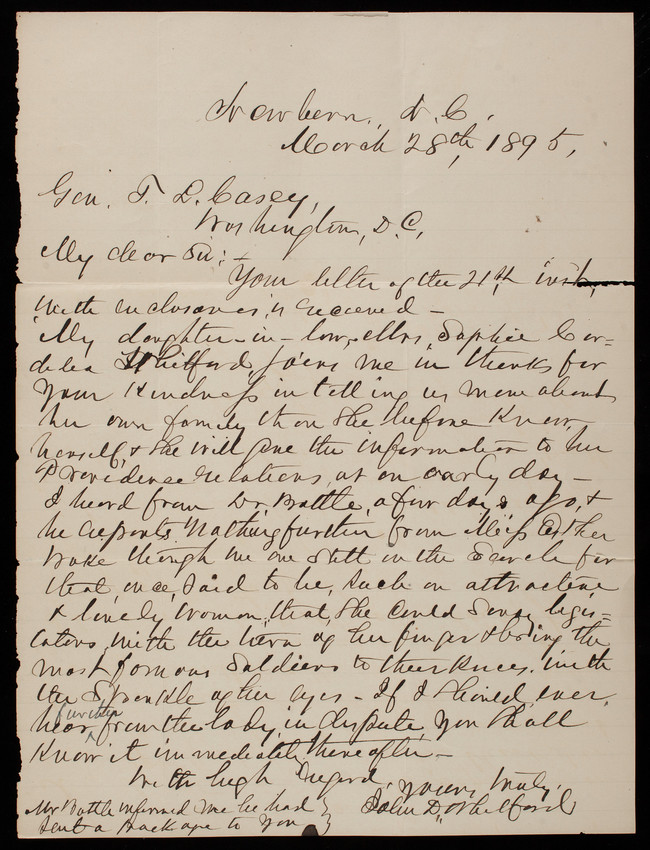 Newbern, N. C.,
March 28th, 1895,
Gen. T. L. Casey,
Washington, D. C,
My dear Sir: -
Your letter of the 21th inst,
with inclosures, is received -
My daughter-in-law, Mrs, Sophie Cor=
delia Whitford, joins me in thanks for
your kindness in telling us more about
her own family than she before knew,
herself, & she will give the information to her
Providence relations, at an early day -
I heard from Dr. Battle, a few days ago, &
he reports nothing further from Miss Esther
Wake though we are still on the search for
that, once, said to be, such an attractive
& lovely woman, that, she could sway legis=
lators, with the turn of her finger & bring the
most famous Soldiers to their knees, with
the Sparkle of her eyes - If I should, ever,
hear further from the lady, in dispute, you shall
know it immediately thereafter -
With high regard,
yours, truly,
John D. Whitford
Mr Battle informed me he had
sent a package to you